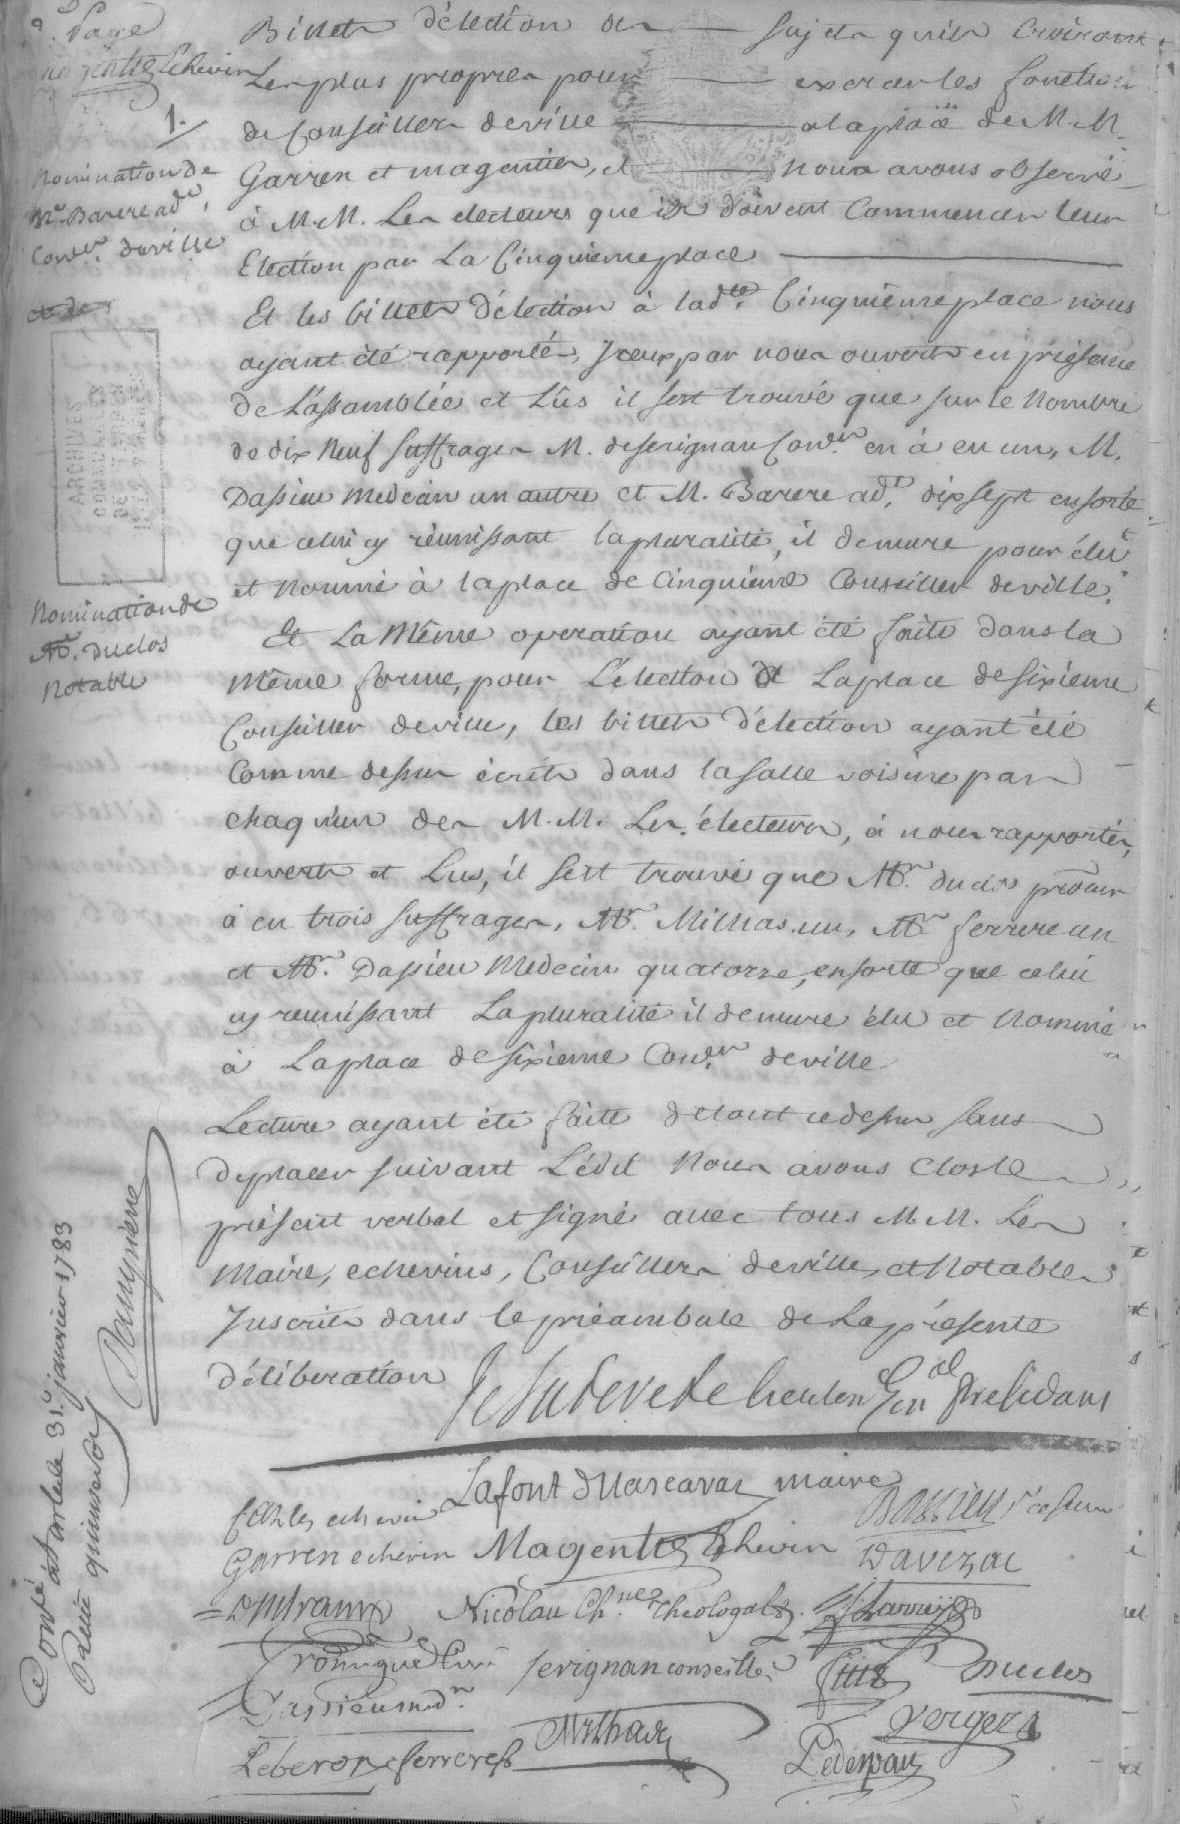 2e. Page
magentie Echevin
1.
Nomination de
Mr. Barere adt.
Conser. de ville
et de
ARCHIVES
COMMUNALES
DE TARBES
Nomination de
Mr. duclos
Notable
Billets d'élection des sujets qu'ils Croiront
Les plus propres pour exercer les fonctions
de Conseillers de ville a la place de M.M.
Garren et magentier, et nous avons observé
à M.M. Les electeurs que ils doivent Commencer leur
Election par La Cinquieme place
Et les billets d'élection à lade. Cinquième place nous
ayant été rapportés, Iceux par nous ouverts en présence
de L'assamblée et Lûs il sest trouvé que sur le Nombre
de dix Neuf suffrages M. deserignan Conser. en à eu un, M.
Dassieu Medecin un autre et M. Barere adt. dix sept ensorte
que celui cy réunissant la pluralité, il demure pour élu
et Nommé à la place de Cinquiéme Conseiller de ville.
Et La Même operation ayant été faite dans la
Même forme, pour L'élection de La place de sixieme
Conseiller de ville, les billets d'élection ayant été
Comme dessus écrits dans la salle voisine par
chaqu'un des M.M. Les électeurs, à nous rapportés,
ouverts et Lus, il sest trouvé que Mr. duclos procur
à eu trois suffrages, Mr. Milhas un, Mr. ferrere un
et Mr. Dassieu Medecin quatorze, ensorte que celui
cy reunissant La pluralité il demure élu et Nommé
à La place de sixieme Conser. de ville
Lecture ayant été faite de tout ce dessus sans
deplacer suivant L'édit Nous avons Clos le
présent verbal et signé avec tous M.M. Les
Maire, echevins, Conseillers de ville, et Notables
Inscrits dans le préambule de La présente
déliberation
president
Lafont d'Uascaras maire
Cazles echevin
Garren echevin Magentie Echevin Davezac
Nicolau Chne. Theologal
serignan conseiller
duclos
Dassieu mdn.
Milhas
verger
Leberon ferrere
Pedespan
Conté à tarbe le 31e. janvier 1783